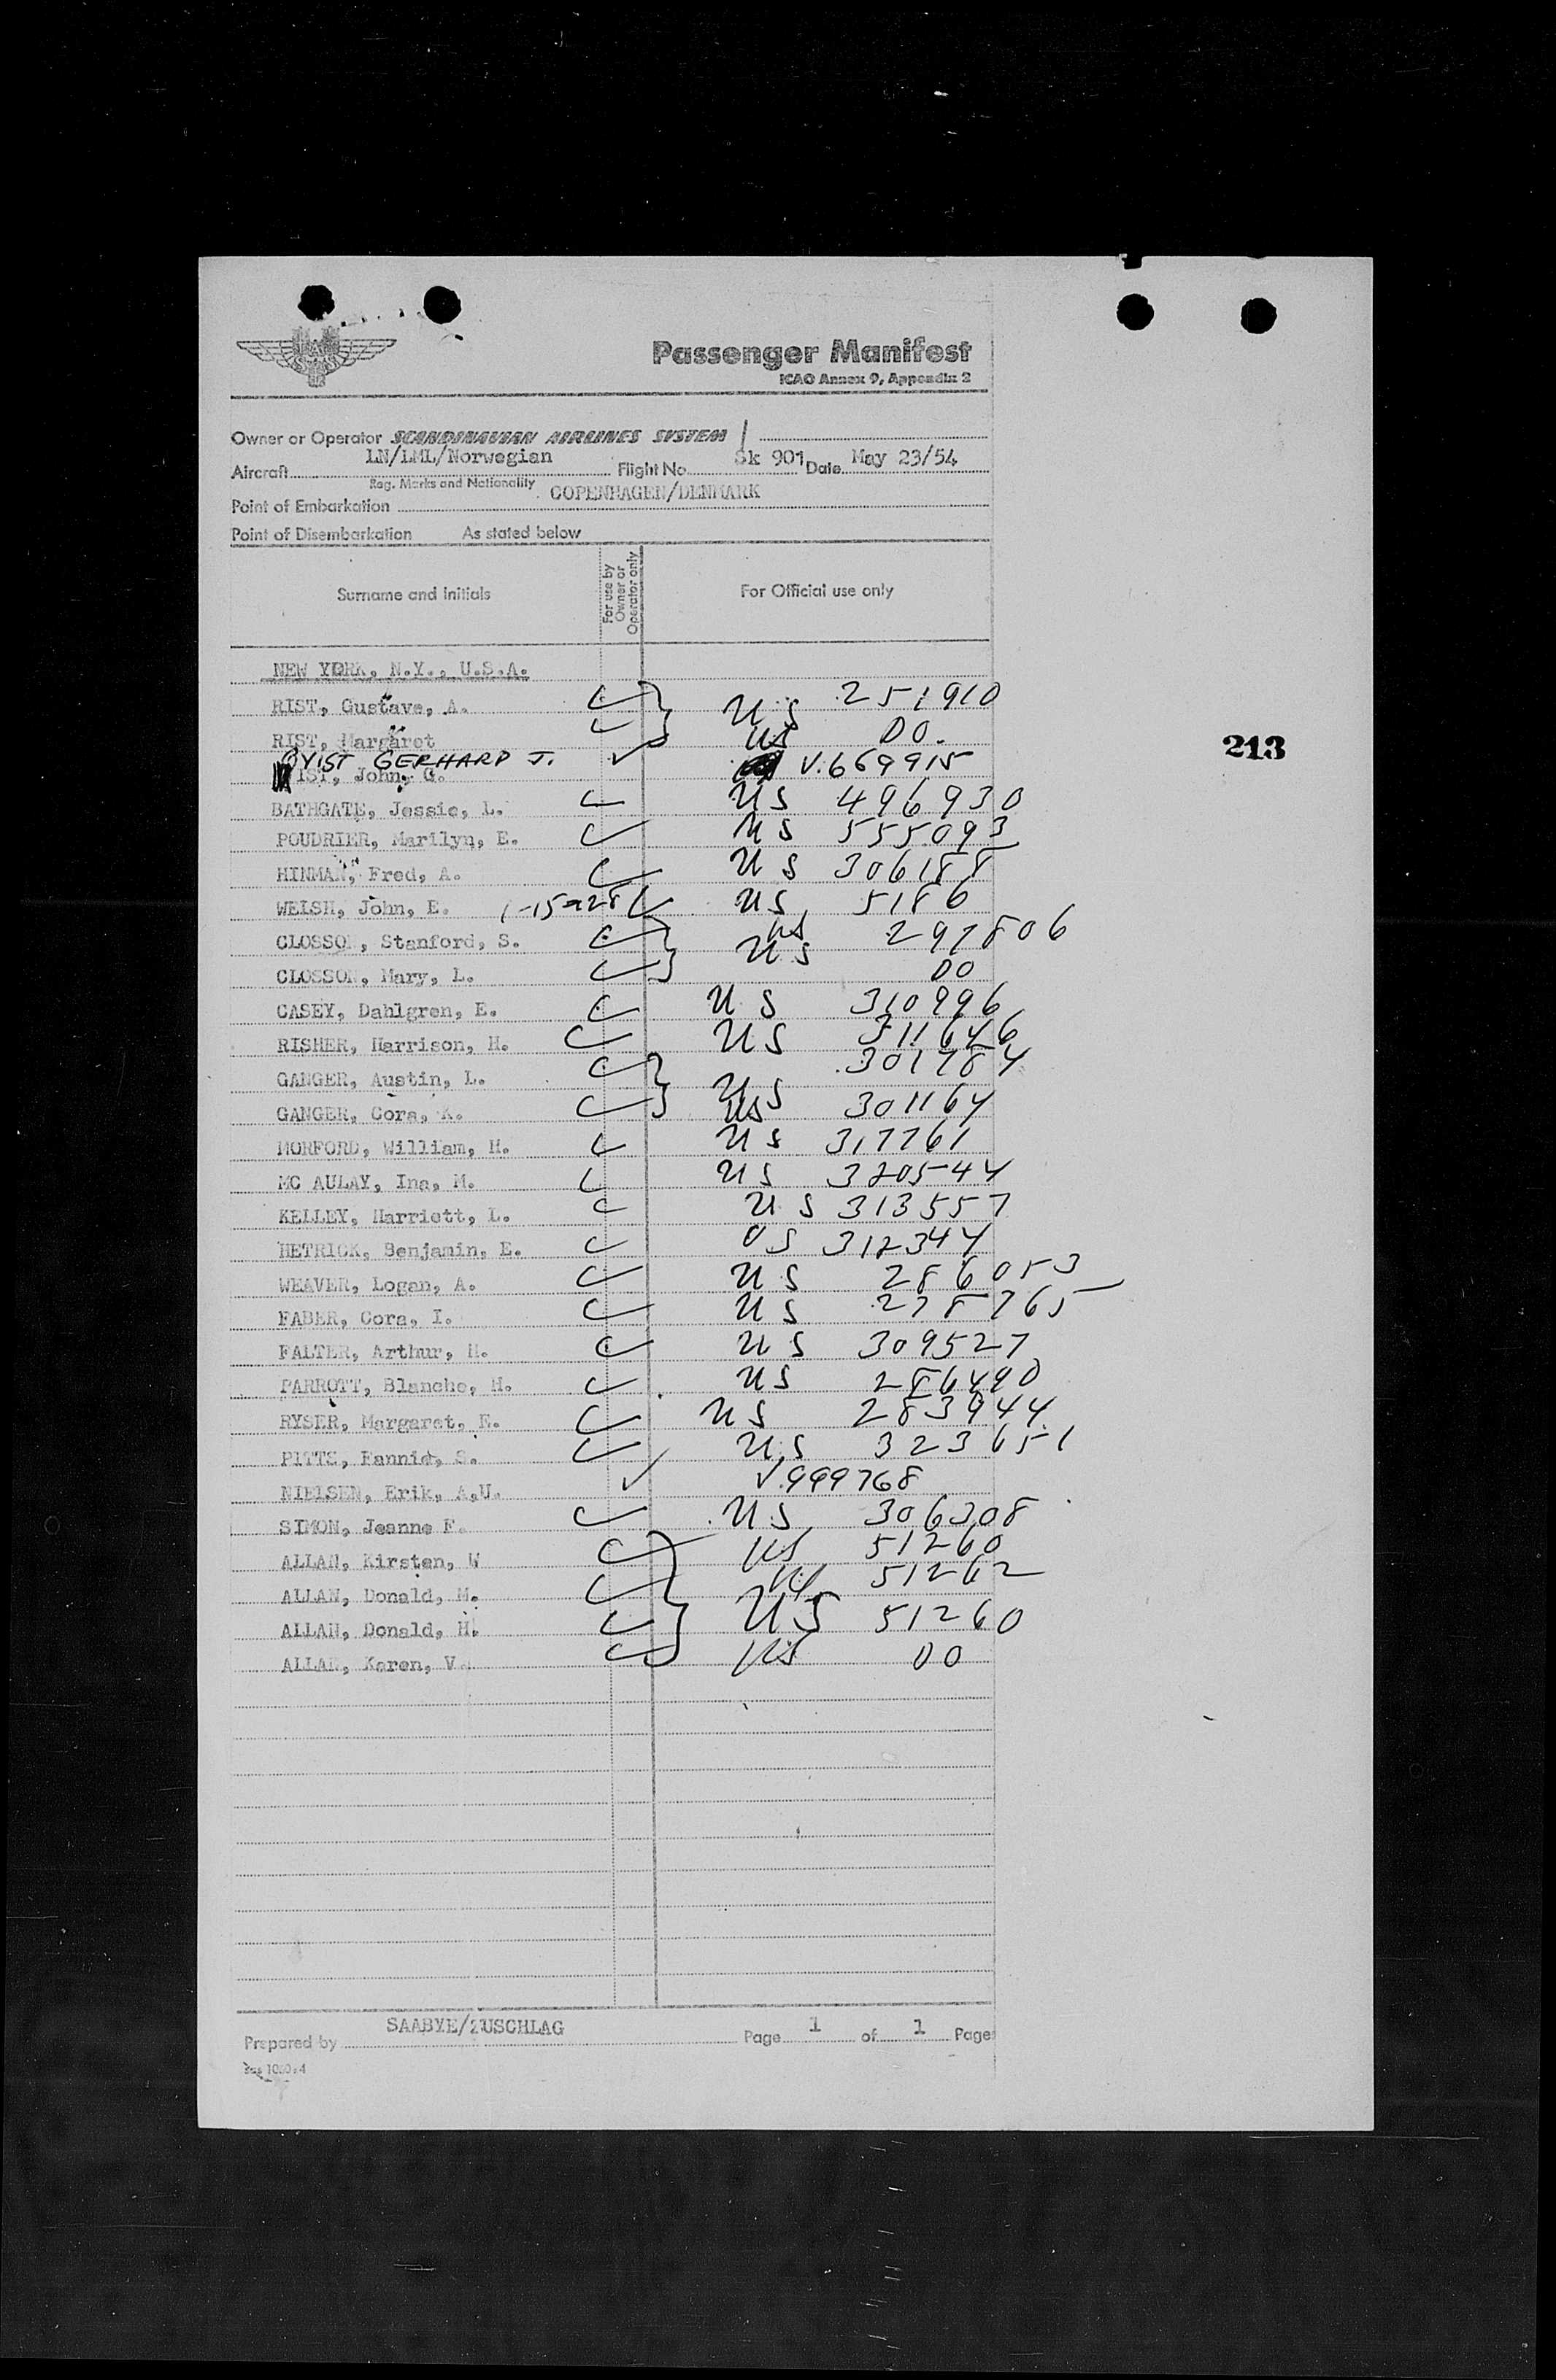 Passenger Manifest
ICAO Annex 9, Appendix 2
Owner or Operator SCANDINAVIAN AIRLINES SYSTEM
Aircraft LN/LML/Norwegian Flight No. Sk 901 Date May 23/54
Reg. Marks and Nationality
Point of Embarkation COPENHAGEN/DENMARK
Point of Disembarkation As stated below
Surname and initials For use by Owner or Operator only For Official use only
NEW YORK, N.Y., U.S.A.
RIST, Gustave, A. US 251910
RIST, Margaret US DO.
213
GERHARD J. V.669915
IST, John, G.
BATHGATE, Jessie, L. US 496930
POUDRIER, Marilyn, E. US 555093
HINMAN, Fred, A. US 306188
WELSH, John, E. 1-15-28 US 5186
CLOSSON, Stanford, S. US 297806
CLOSSON, Mary, L. US DO
CASEY, Dahlgren, E. US 310996
RISHER, Harrison, H. US 311646
GANGER, Austin, L. US 301784
GANGER, Cora, K. US 301164
MORFORD, William, H. US 317761
MC AULAY, Ina, M. US 320544
KELLEY, Harriett, L. US 313557
HETRICK, Benjamin, E. US 312344
WEAVER, Logan, A. US 286053
FABER, Cora, I. US 278765
FALTER, Arthur, H. US 309527
PARROTT, Blanche, M. US 286490
RYSER, Margaret, E. US 283944
PITTS, Fannie, S. US 323651
NIELSEN, Erik, A.U. V.999768
SIMON, Jeanne F. US 306308
ALLAN, Kirsten, W US 51260
ALLAN, Donald, M. US 51262
ALLAN, Donald, H. US 51260
ALLAN, Karen, V. US DO
Prepared by SAABYE/ZUSCHLAG Page 1 of 1 Page